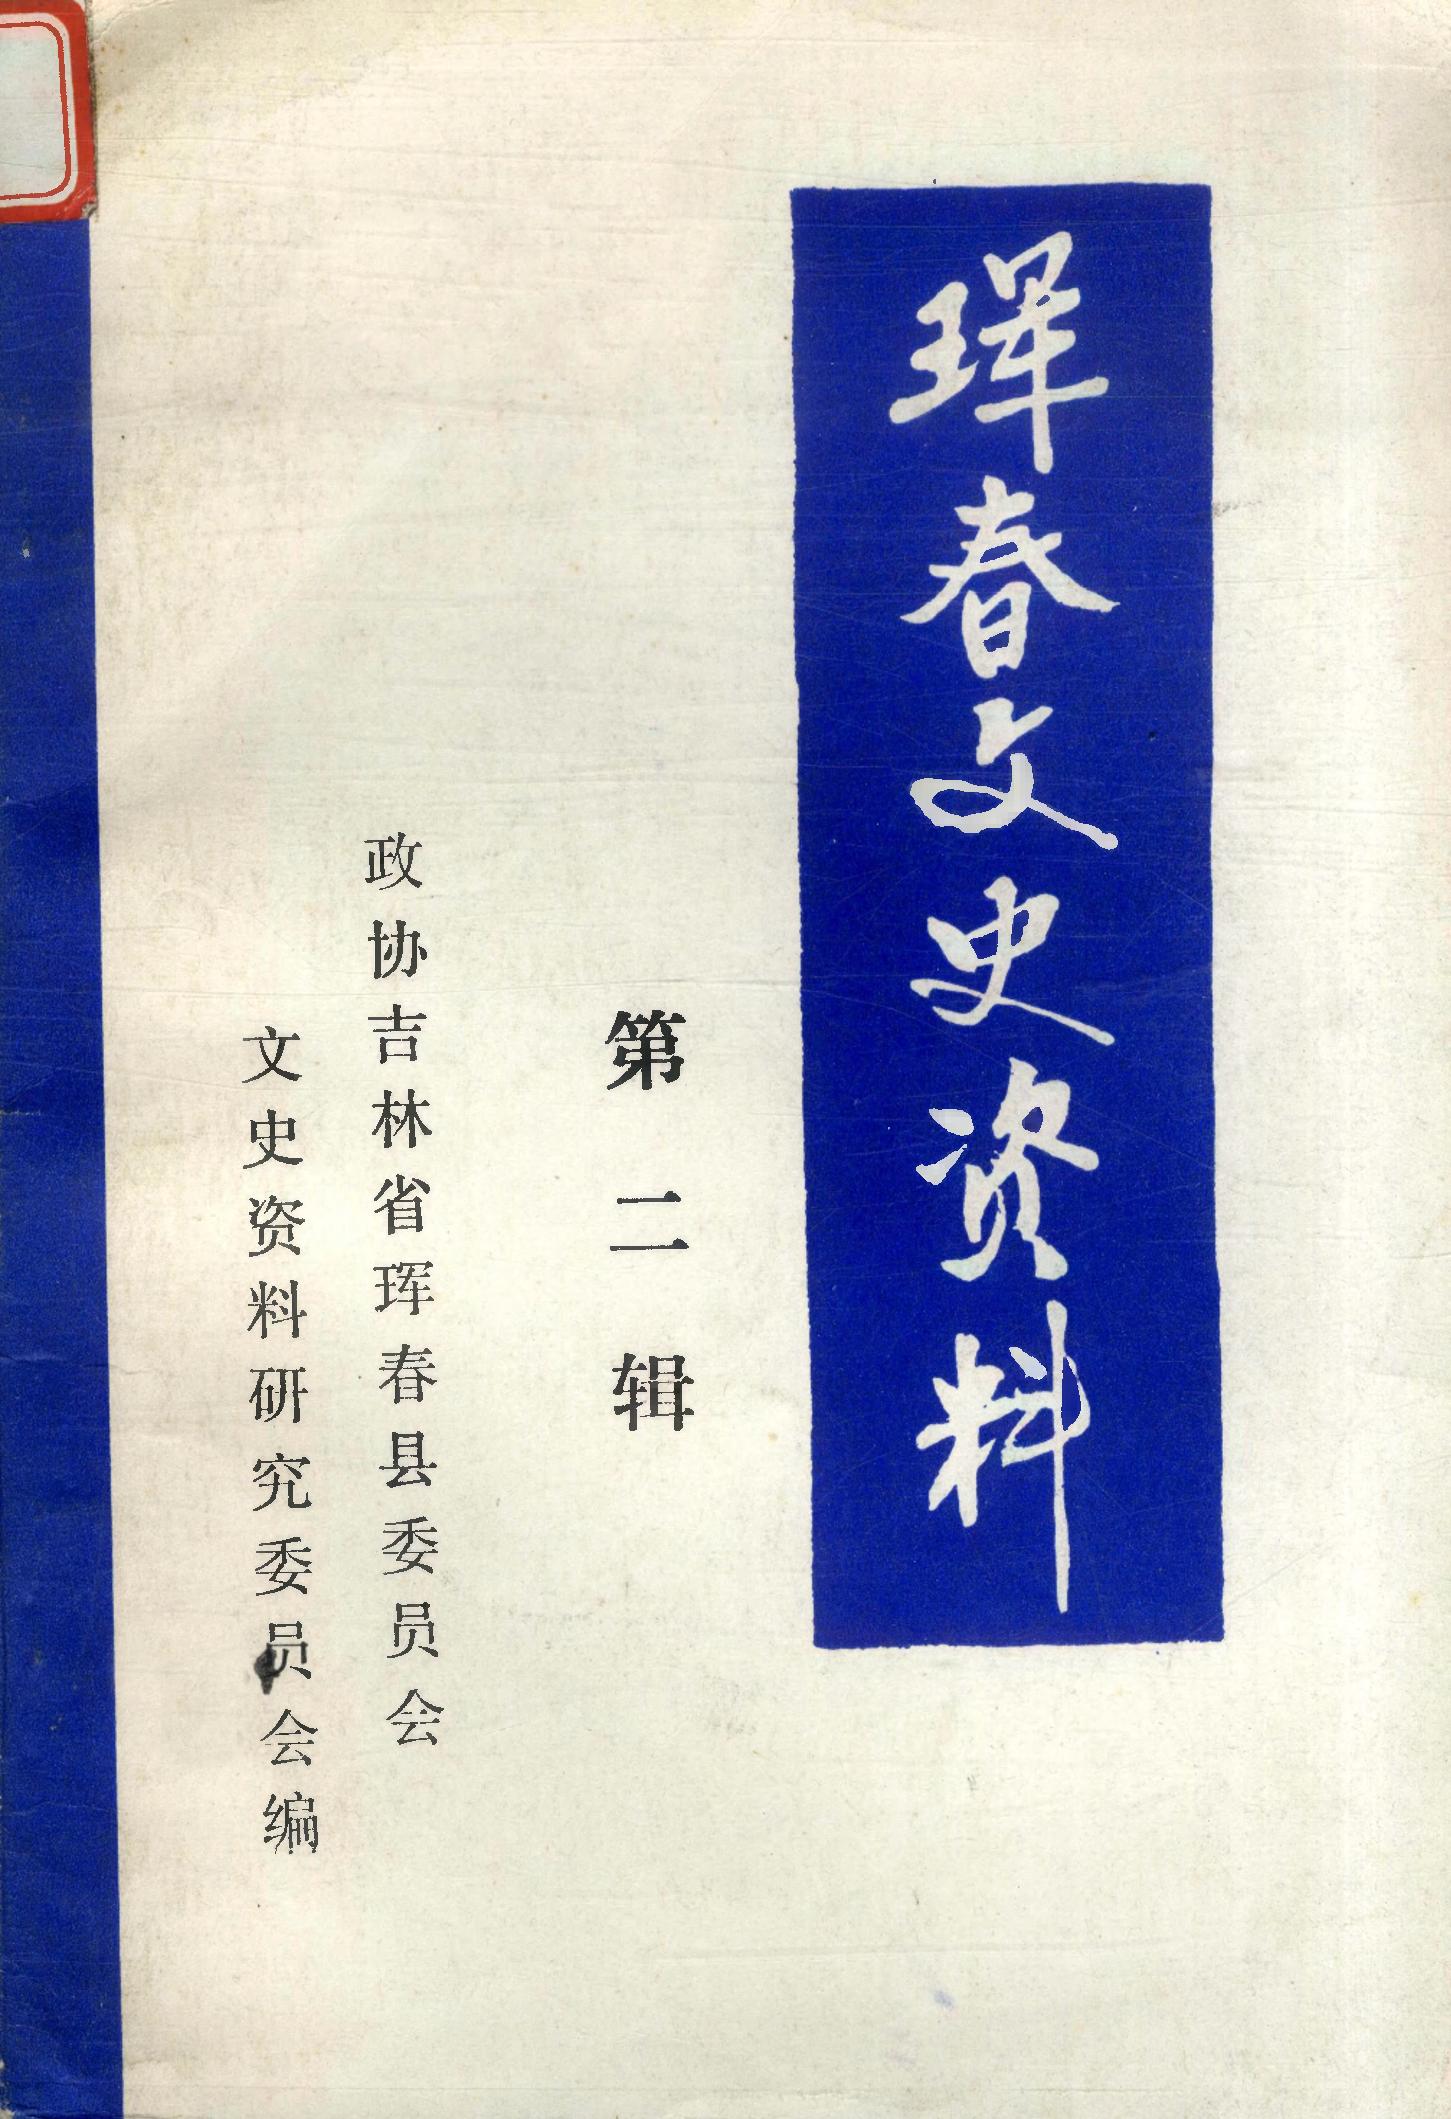 珲春文史资料
第二辑
政协吉林省珲春县委员会
文史资料研究委员会编